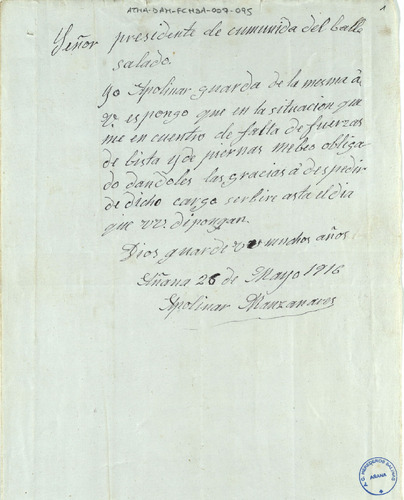 ATHA-DAH-FCHDA-007-095
1
Señor presidente de cumunida del balle
salado.
Yo Apolinar guarda de la mesma á
V. espongo que en la situacion que
me en cuentro de falta de fuerzas
de bista y de piernas mebeo obliga
do dandoles las gracias á despedir
de dicho cargo serbire asta el dia
que VV. dipongan.
Dios guarde V muchos años
Añana 26 de Mayo 1916
Apolinar Manzanares
AÑANA